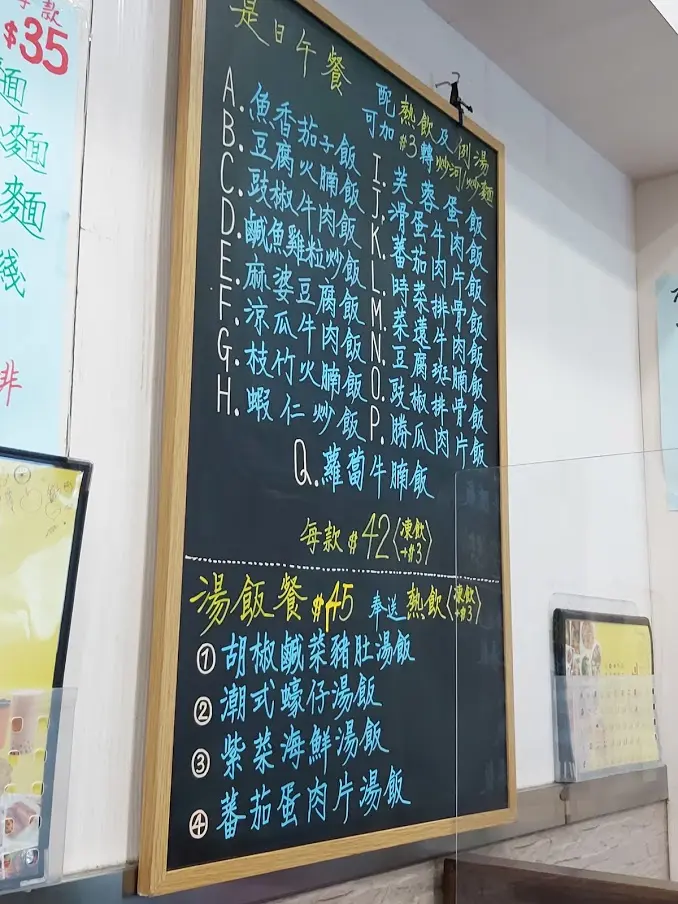 款
$35
麵
麵
麵
綫
是日午餐
配熱飲及例湯
可加$3轉炒河/炒麵
A.魚香茄子飯
B.豆腐火腩飯
C.豉椒牛肉飯
D.鹹魚雞粒炒飯
E.麻婆豆腐飯
F.涼瓜牛肉飯
G.枝竹火腩飯
H.蝦仁炒飯
I.芙蓉蛋飯
J.滑蛋牛肉飯
K.蕃茄肉片飯
L.時菜排骨飯
M.菜遠牛肉飯
N.豆腐斑腩飯
O.豉椒排骨飯
P.勝瓜肉片飯
Q.蘿蔔牛腩飯
每款$42(凍飲+$3)
湯飯餐$45 奉送熱飲(凍飲+$3)
①胡椒鹹菜豬肚湯飯
②潮式蠔仔湯飯
③紫菜海鮮湯飯
④蕃茄蛋肉片湯飯